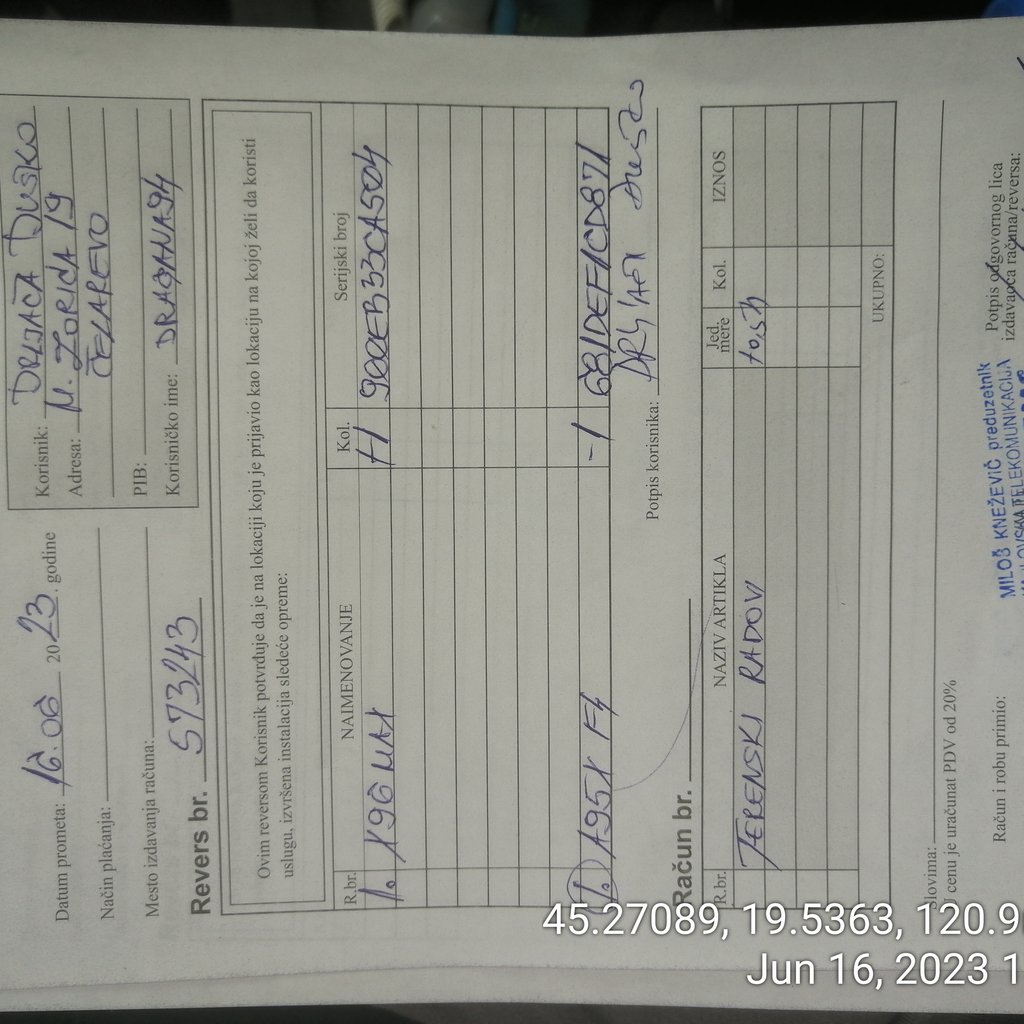 Datum prometa: 16.06 2023. godine
Način plaćanja:
Mesto izdavanja računa:
Korisnik: DRLJAČA DUŠKO
Adresa: N. ZORIĆA 19
ČELAREVO
PIB:
Korisničko ime: DRAGANA94
Revers br. 573243
Ovim reversom Korisnik potvrđuje da je na lokaciji koju je prijavio kao lokaciju na kojoj želi da koristi
uslugu, izvršena instalacija sledeće opreme:
R.br. NAIMENOVANJE Kol. Serijski broj
1. X96 MAX +1 900EB33CA504
1. A95X F4 -1 681DEF1CD871
Potpis korisnika:
Račun br.
R.br. NAZIV ARTIKLA Jed. mere Kol. IZNOS
TERENSKI RADOVI
UKUPNO:
Slovima:
U cenu je uračunat PDV od 20%
Račun i robu primio:
Potpis odgovornog lica
izdavaoca računa/reversa:
MILOŠ KNEŽEVIĆ preduzetnik
TELEKOMUNIKACIJA
45.27089, 19.5363, 120.9
Jun 16, 2023 1